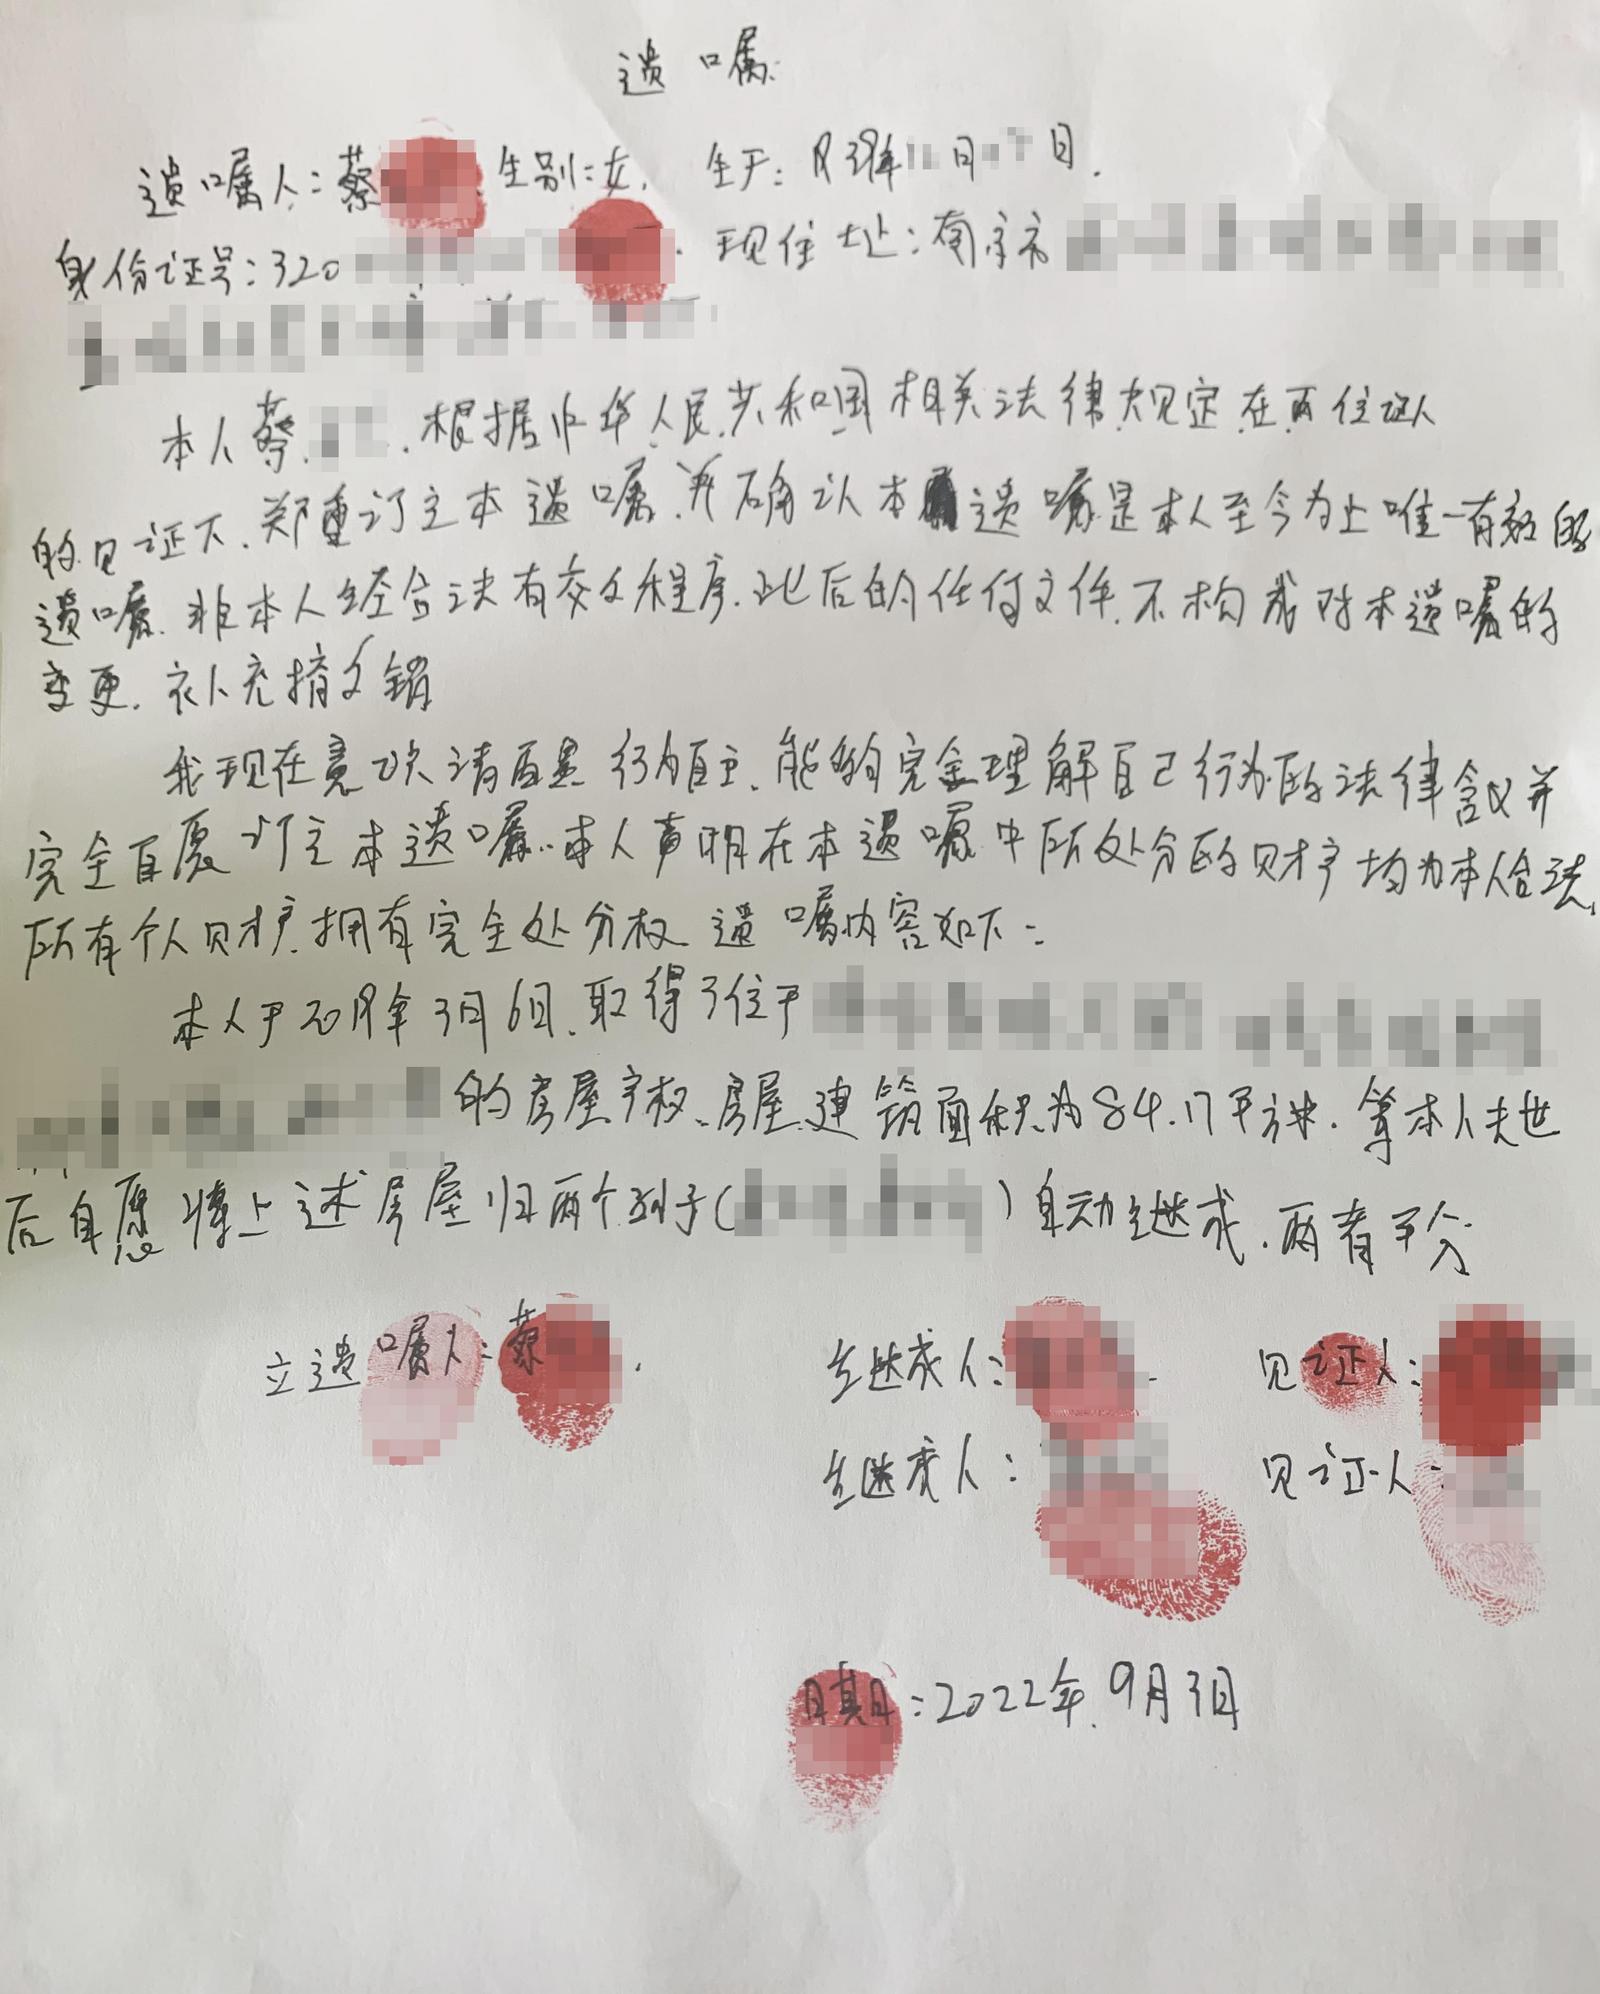 遗嘱
遗嘱人：蔡 生别：女， 生于：1938年 月 日．
身份证号：320 ．现住址：南京市
本人蔡 ．根据中华人民共和国相关法律规定在两位证人
的见证下．郑重订立本遗嘱．并确认本遗嘱是本人至今为止唯一有效的
遗嘱．非本人经合法有效程序．此后的任何文件．不构成对本遗嘱的
变更．补充撤销
我现在意识清 行为自主．能够完全理解自己行为的法律含义并
完全自愿订立本遗嘱．本人声明在本遗嘱中所处分的财产均为本人合法
所有个人财产．拥有完全处分权．遗嘱内容如下：
本人于 年3月6日．取得了位于
的房屋产权．房屋建筑面积为84.17平方米．等本人去世
后自愿将上述房屋归两个孙子（ ）自动继承．两者平分
立遗嘱人：蔡 ．
继承人： 见证人：
继承人： 见证人：
日期：2022年．9月3日